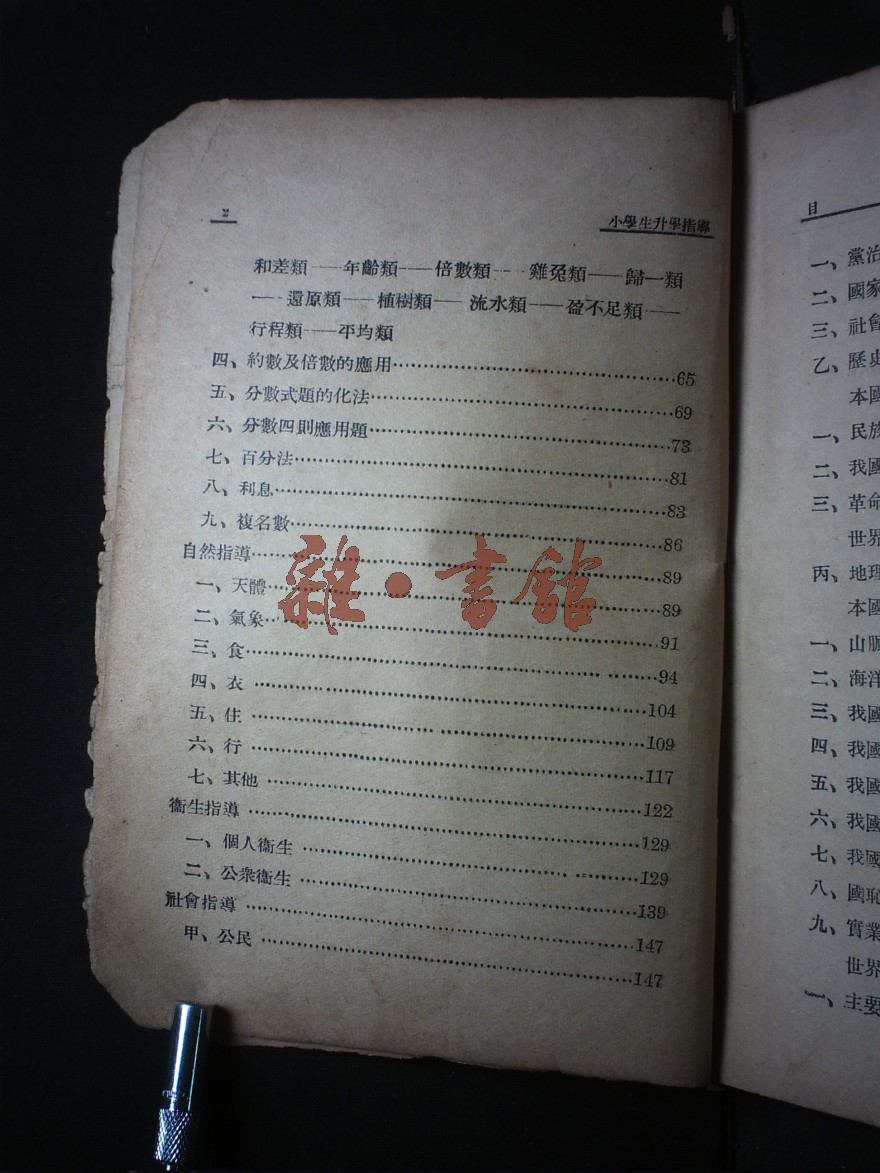 2
小學生升學指導
和差類——年齡類——倍數類——雞兔類——歸一類
——還原類——植樹類——流水類——盈不足類——
行程類——平均類
四、約數及倍數的應用……65
五、分數式題的化法……69
六、分數四則應用題……73
七、百分法……81
八、利息……83
九、複名數……86
自然指導……89
一、天體……89
二、氣象……91
三、食……94
四、衣……104
五、住……109
六、行……117
七、其他……122
衞生指導……129
一、個人衞生……129
二、公衆衞生……139
社會指導……147
甲、公民……147
雜·書館
目
一、黨治
二、國家
三、社會
乙、歷史
本國
一、民族
二、我國
三、革命
世界
丙、地理
本國
一、山脈
二、海洋
三、我國
四、我國
五、我國
六、我國
七、我國
八、國恥
九、實業
世界
一、主要